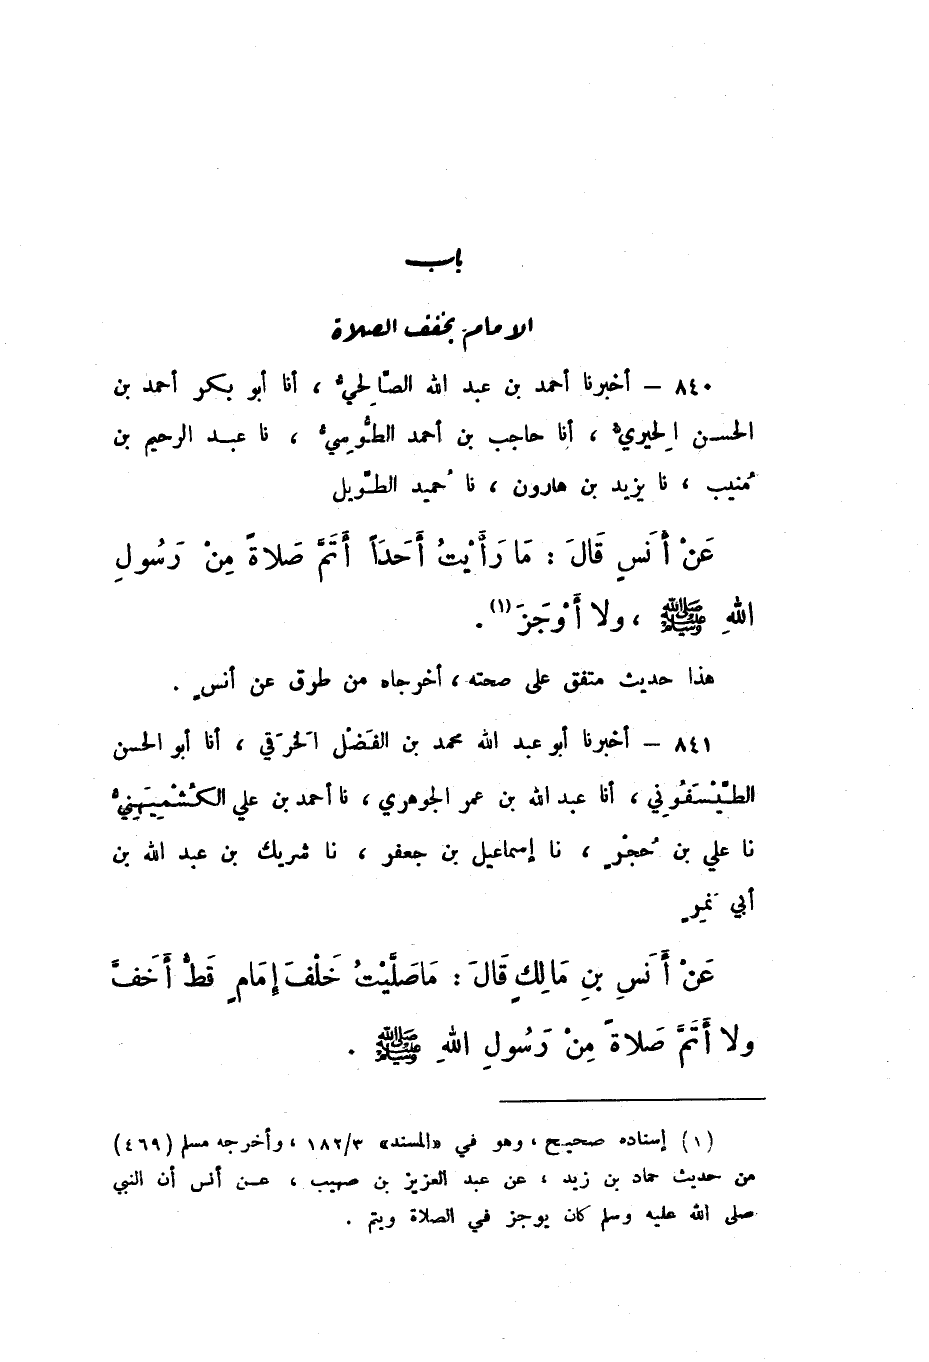 باب
الامام يخفف الصلاة
٨٤٠ – أخبرنا أحمد بن عبد الله الصَّالِحيُّ ، أنا أبو بكر أحمد بن
الحسن الحِيريُّ ، أنا حاجب بن أحمد الطُّوسِيُّ ، نا عبد الرحيم بن
مُنيب ، نا يزيد بن هارون ، نا حُميد الطَّويل
عَنْ أَنَسٍ قَالَ : مَا رَأَيْتُ أَحَدَاً أَتَمَّ صَلاةً مِنْ رَسُولِ
اللهِ ﷺ ، ولا أَوْجَزَ (١) .
هذا حديث متفق على صحته ، أخرجاه من طرق عن أنسٍ .
٨٤١ – أخبرنا أبو عبد الله محمد بن الفَضْل الخَرَقي ، أنا أبو الحسن
الطَّيْسَفُوني ، أنا عبد الله بن عمر الجوهري ، نا أحمد بن علي الكُشْمِيهَنِيُّ
نا علي بن حُجْرٍ ، نا إسماعيل بن جعفر ، نا شريك بن عبد الله بن
أبي نَمِرٍ
عَنْ أَنَسِ بنِ مَالِكٍ قَالَ : مَاصَلَّيْتُ خَلْفَ إمَامٍ قَطُّ أَخَفَّ
ولا أَتَمَّ صَلاةً مِنْ رَسُولِ اللهِ ﷺ .
(١) إسناده صحيح ، وهو في «المسند» ١٨٢/٣ ، وأخرجه مسلم (٤٦٩)
من حديث حماد بن زيد ، عن عبد العزيز بن صهيب ، عن أنس أن النبي
صلى الله عليه وسلم كان يوجز في الصلاة ويتم .